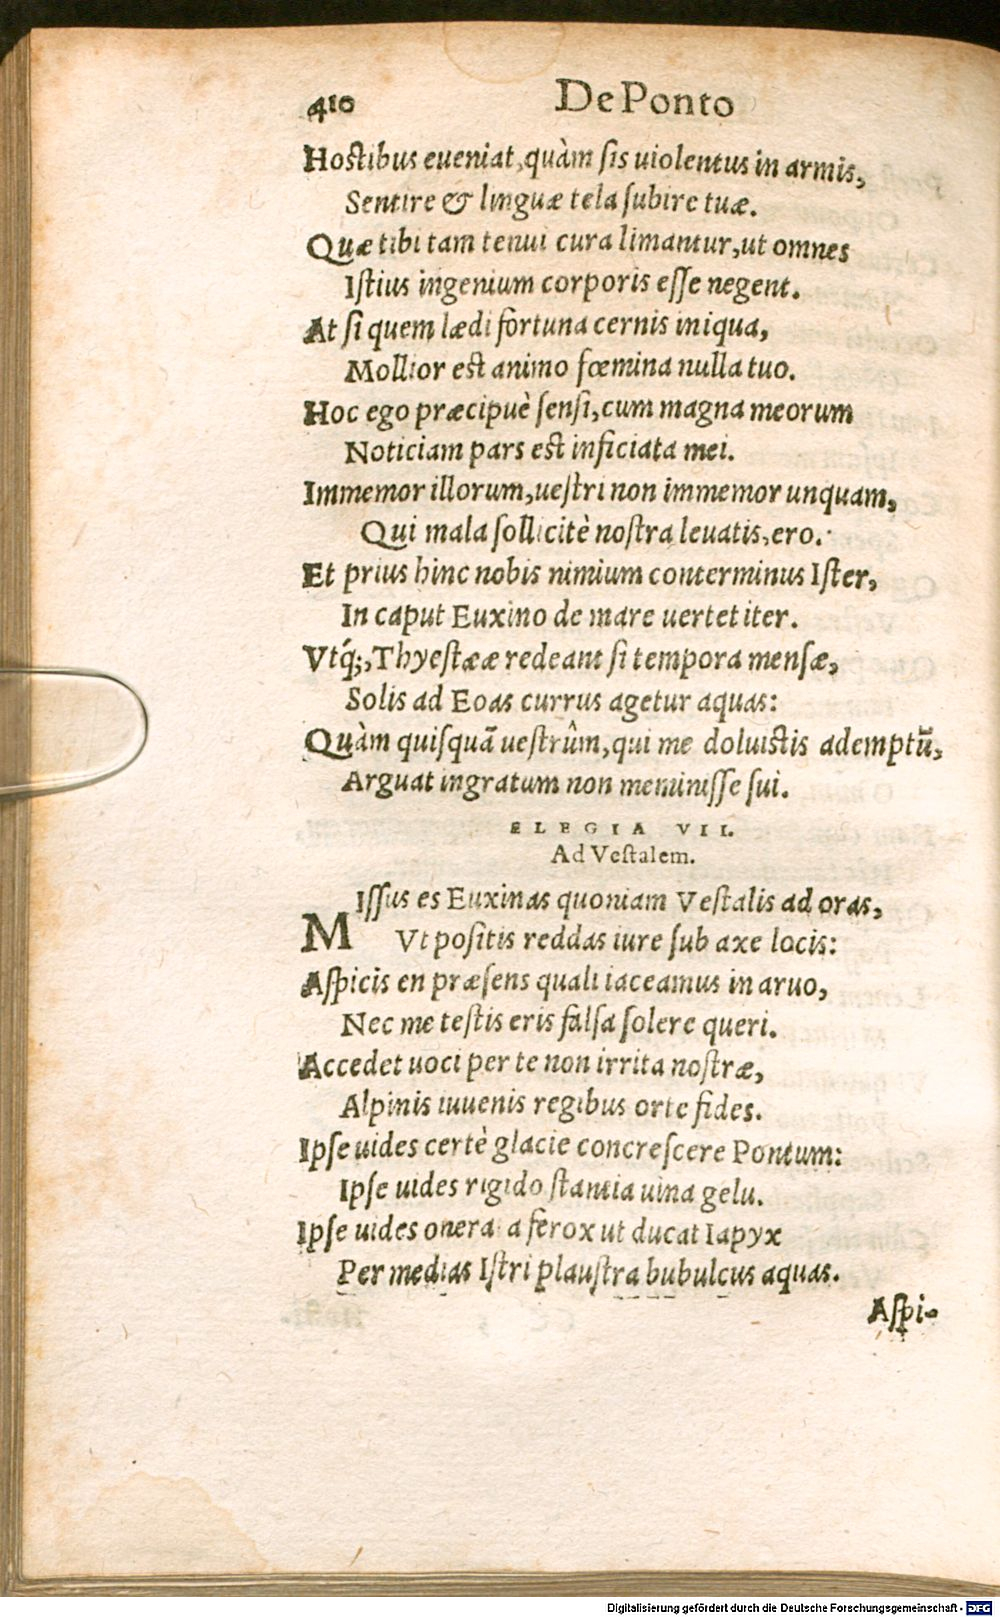 410 De Ponto
Hostibus eueniat, quàm sis uiolentus in armis,
Sentire & linguæ tela subire tuæ.
Quæ tibi tam tenui cura limantur, ut omnes
Istius ingenium corporis esse negent.
At si quem lædi fortuna cernis iniqua,
Mollior est animo fœmina nulla tuo.
Hoc ego præcipuè sensi, cum magna meorum
Noticiam pars est inficiata mei.
Immemor illorum, uestri non immemor unquam,
Qui mala sollicitè nostra leuatis, ero.
Et prius hinc nobis nimium conterminus Ister,
In caput Euxino de mare uertet iter.
Vtq́;, Thyestææ redeant si tempora mensæ,
Solis ad Eoas currus agetur aquas:
Quàm quisquā uestrûm, qui me doluistis ademptū,
Arguat ingratum non meminisse sui.
ÆLEGIA VII.
Ad Vestalem.
MIssus es Euxinas quoniam Vestalis ad oras,
Vt positis reddas iure sub axe locis:
Aspicis en præsens quali iaceamus in aruo,
Nec me testis eris falsa solere queri.
Accedet uoci per te non irrita nostræ,
Alpinis iuuenis regibus orte fides.
Ipse uides certè glacie concrescere Pontum:
Ipse uides rigido stantia uina gelu.
Ipse uides onera a ferox ut ducat Iapyx
Per medias Istri plaustra bubulcus aquas.
Aspi-
Digitalisierung gefördert durch die Deutsche Forschungsgemeinschaft - DFG